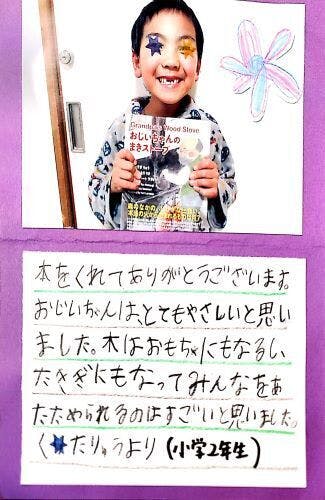 Grandpa's Wood Stove
おじいちゃんの
まきストーブ
本をくれてありがとうございます。
おじいちゃんは、とてもやさしいと思い
ました。木はおもちゃにもなるし、
たきぎにもなってみんなをあ
たためられるのはすごいと思いました。
たりゅうより (小学2年生)